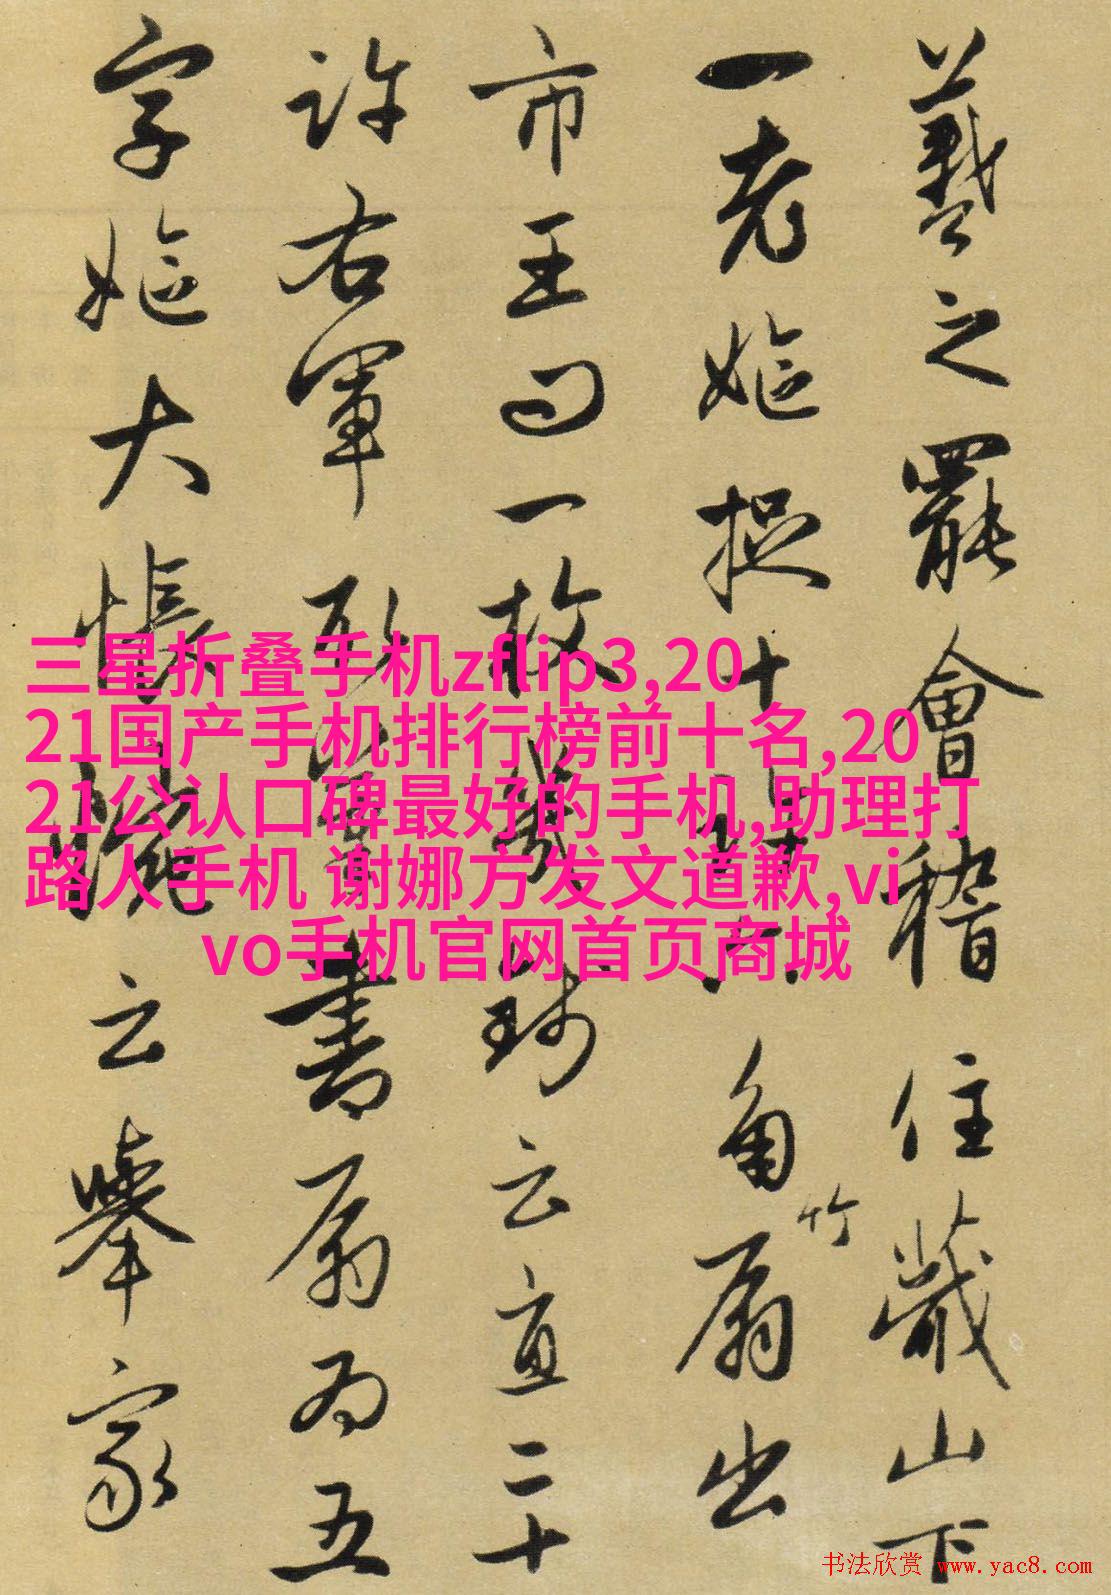 羲之罷會稽住蕺山下
一老嫗捉十許六角竹扇出
市王問一枚幾錢云直二十
許右軍取筆書扇為五
字嫗大悵惋云舉家
三星折叠手机zflip3,20
21国产手机排行榜前十名,20
21公认口碑最好的手机,助理打
路人手机 谢娜方发文道歉,vi
vo手机官网首页商城
书法欣赏 www.yac8.com